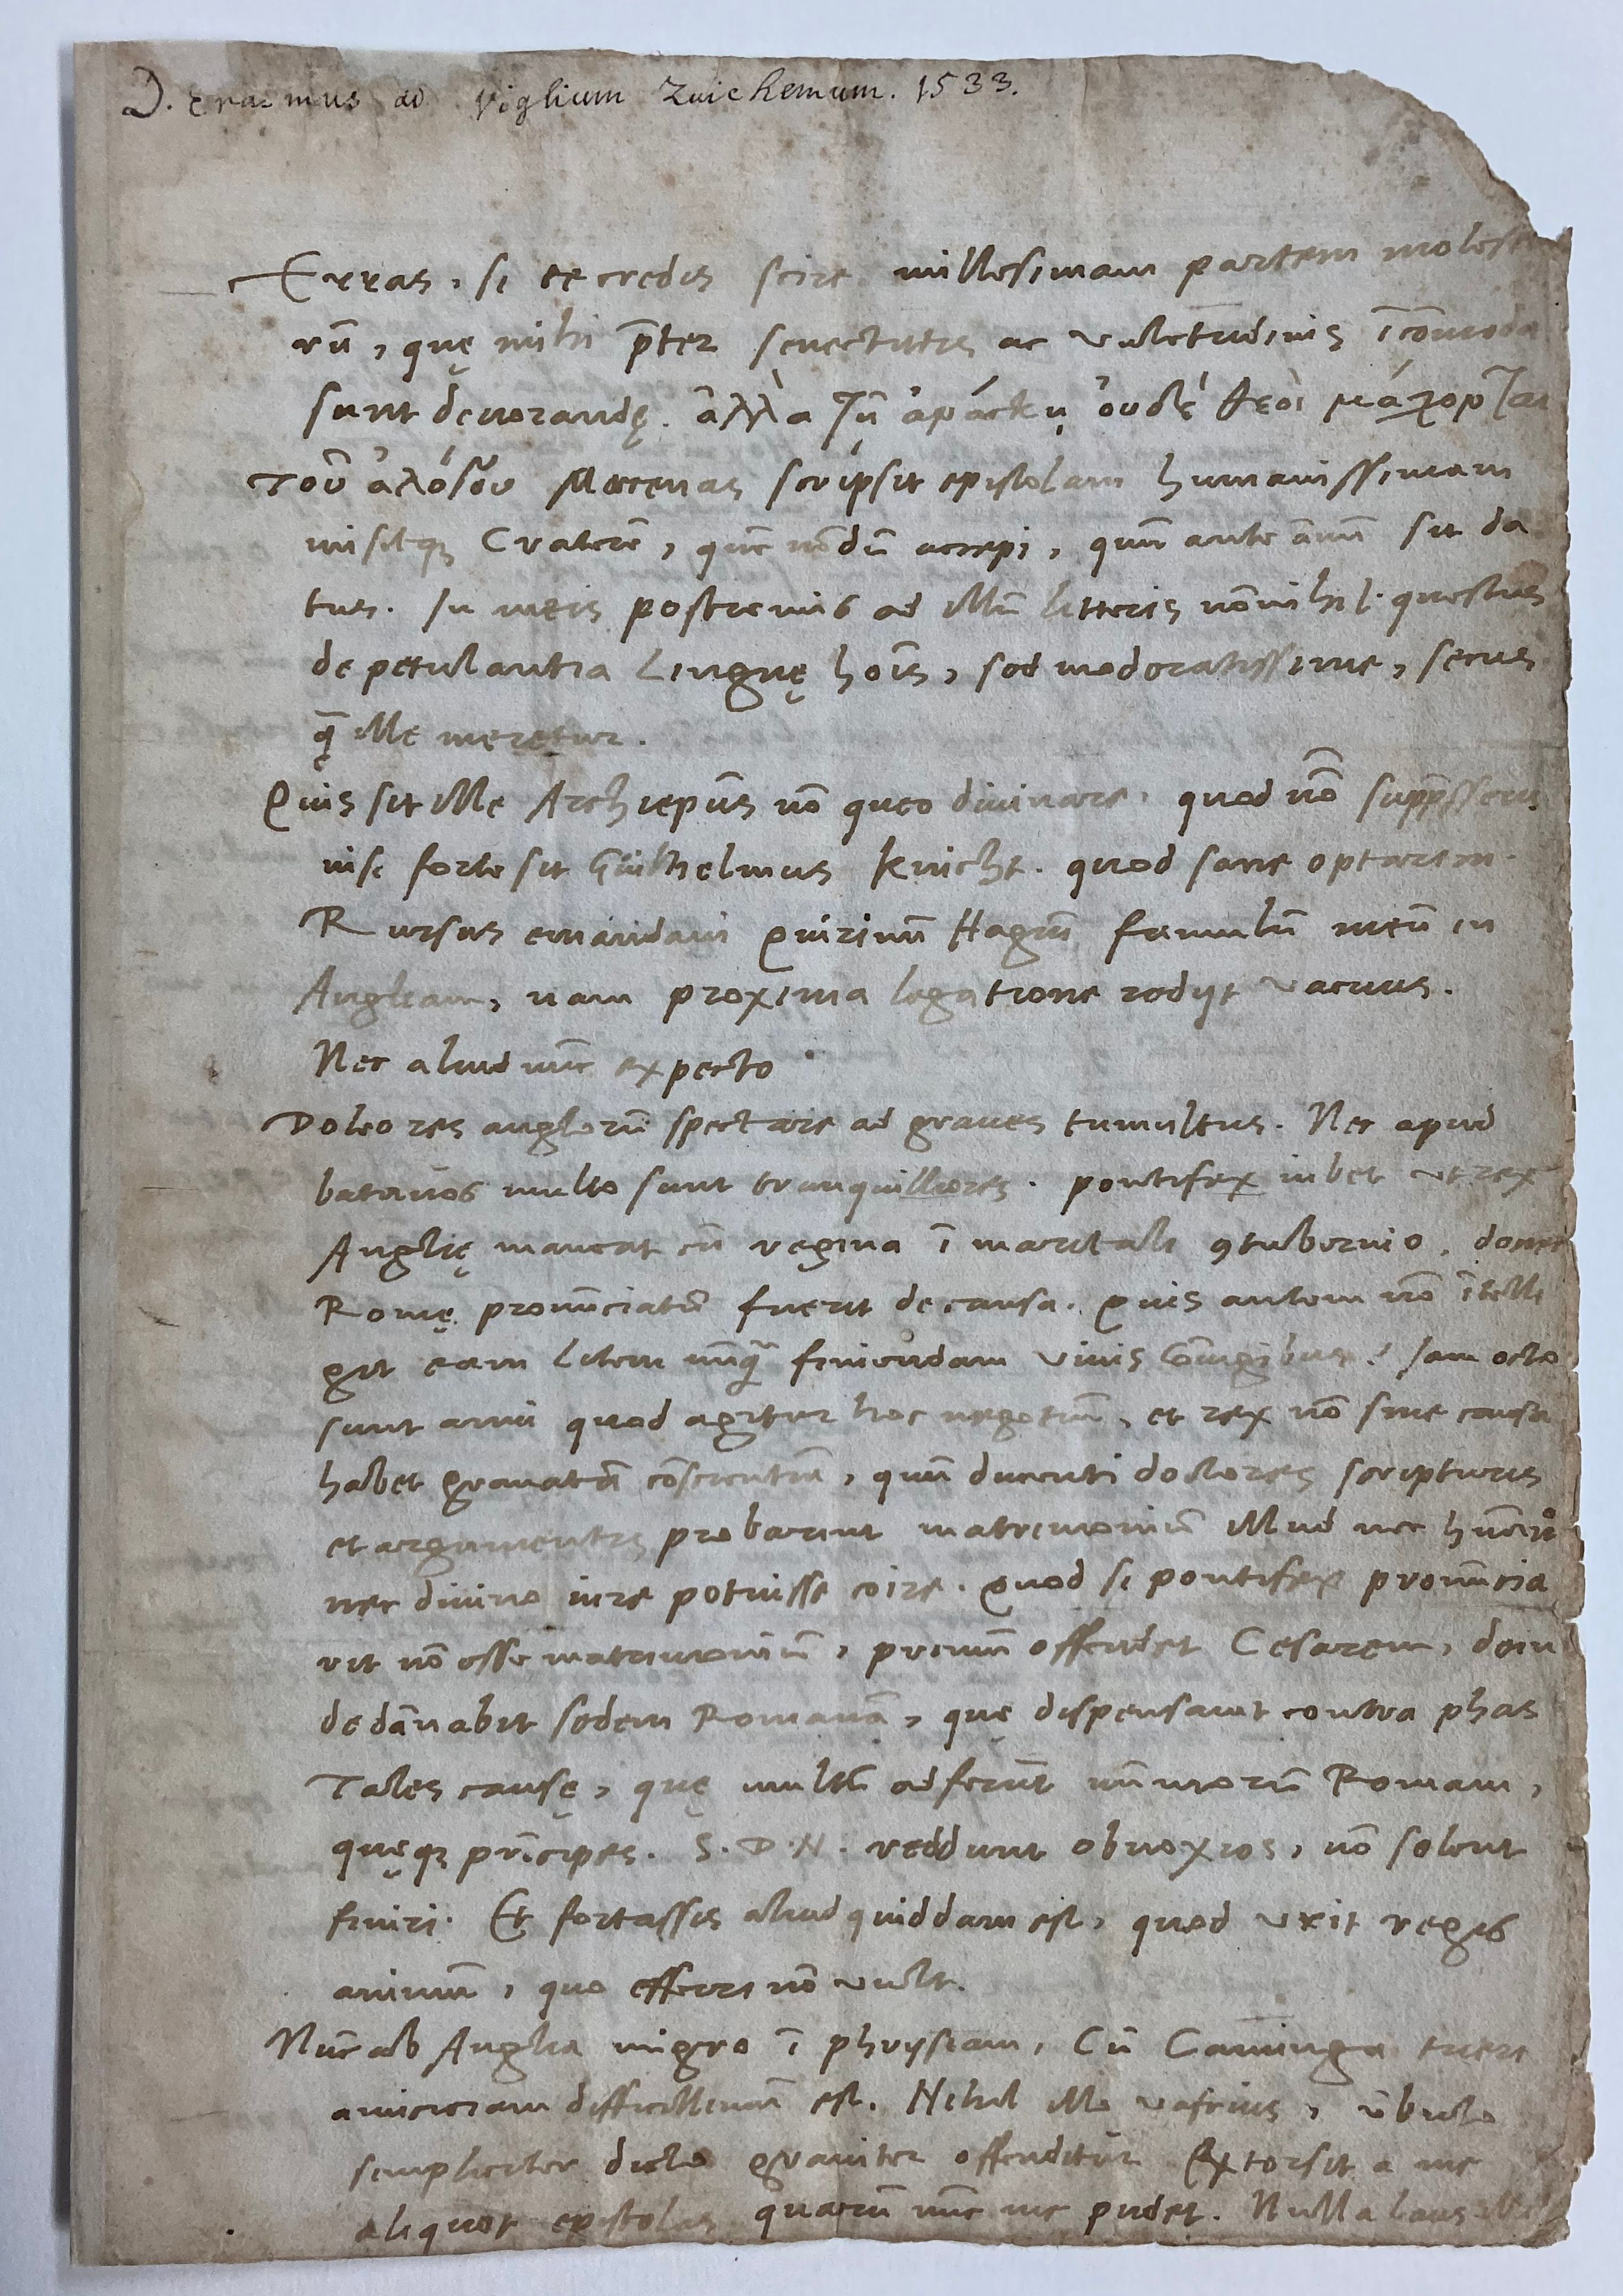 D. Erasmus ad Viglium Zuichemum. 1533.
Erras, si te credis scire millesimam partem molest
rū, quę mihi p̄ter senectutis ac valetudinis īcōmoda
sunt devorandę. ἀλλὰ ἀνάγκῃ οὐδὲ θεοὶ μάχονται
τοῦ Mecenas scripsit epistolam humanissimam
misitq; Craterē, quē nōdū accepi, quum ante annū sit da
tus. In meis postremis ad illū litteris nōnihil questus
de petulantia linguę hoīs, sed moderatissime, secus
q̄ ille meretur.
Quis sit ille Archiepūs nō queo divinare, quod nō supp̄sseris
nisi forte sit Guilhelmus Knicht. quod sane optarim.
Rursus emandavi Quirinū Hagiū famulū meū in
Angliam, nam proxima legatione rediit vacuus.
Nec aliud nūc expecto
Doleo res anglorū spectare ad graves tumultus. Nec apud
batavos multo sunt tranquilliores. pontifex iubet ut rex
Anglię maneat cū regina ī maritali ꝯtubernio, donec
Romę pronūciatū fuerit de causa. Quis autem nō ītelli
git eam litem nūq̄ finiendam vivis cōiugibus? Iam octo
sunt anni quod agitur hoc negotiū, et rex nō sine causa
habet gravatā cōscientiā, quū ducenti doctores scripturis
et argumentis probarint matrimoniū illud nec humano
nec divino iure potuisse coire. Quod si pontifex pronūcia
rit nō esse matrimoniū, primū offendet Cesarem, dein
de dānabit sedem Romanā, quę dispensavit contra phas
Tales causę, quę multū adferūt nūmorū Romam,
quęq; prīcipes. S. D. N. reddunt obnoxios, nō solent
finiri. Et fortassis aliud quiddam est, quod urit regis
animū, quo efferri nō vult.
Nūc ab Anglia migro ī phrysiam, Cū Caminga tueri
amiciciam difficillimū est. Nihil illo vafrius, verbulo
simpliciter dicto graviter offenditur Extorsit a me
aliquot epistolas quarū nūc me pudet. Nulla laus illi